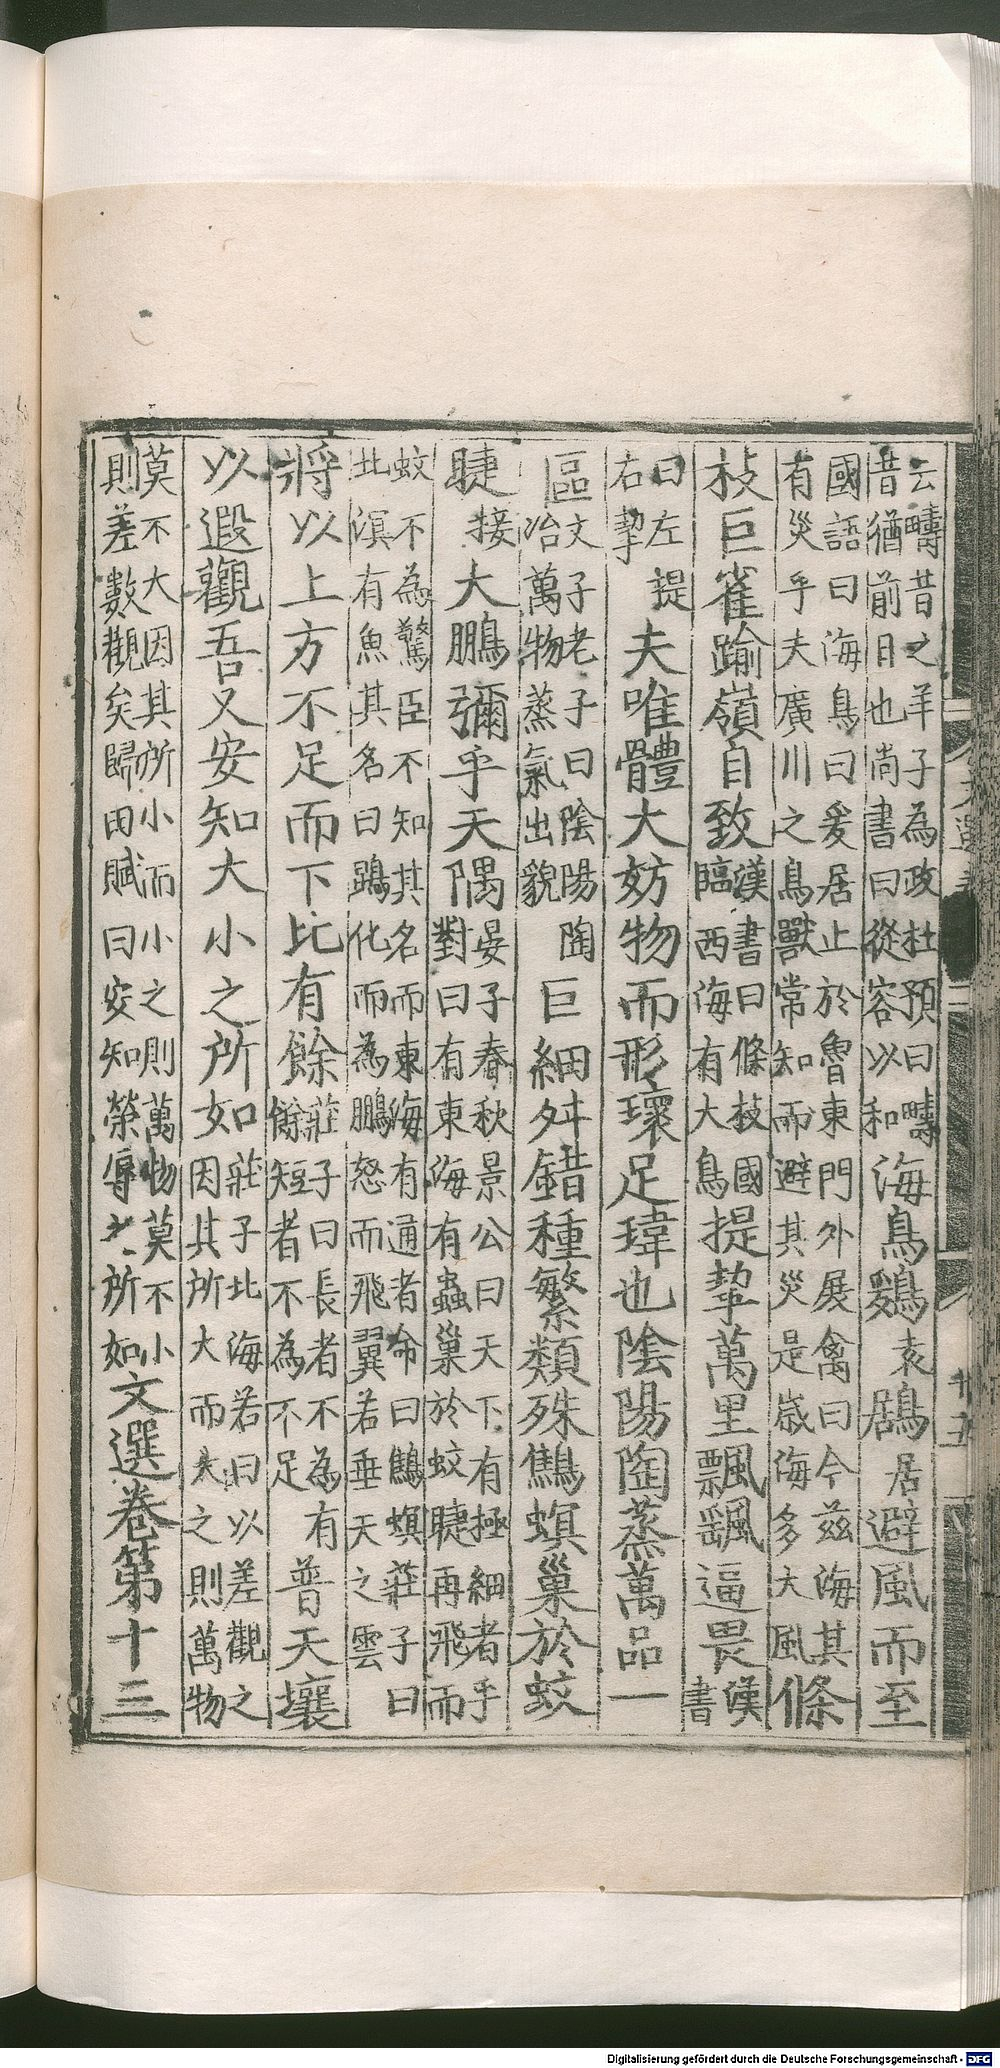 云疇昔之羊子為政杜預曰疇昔猶前日也尚書曰從容以和海鳥鶢袁鶋居避風而至
國語曰海鳥曰爰居止於魯東門外展禽曰今兹海其有災乎夫廣川之鳥獸常知而避其災是歲海多大風條
枝巨雀踰嶺自致漢書曰條枝國臨西海有大鳥提挈萬里飄颻逼畏漢書
曰左提右挈夫唯體大妨物而形瓌足瑋也陰陽陶蒸萬品一
區文子老子曰陰陽陶冶萬物蒸氣出貌巨細舛錯種繁類殊鷦螟巢於蚊
睫接大鵬彌乎天隅晏子春秋景公曰天下有極細者乎對曰有東海有蟲巢於蚊睫再飛而
蚊不為驚臣不知其名而東海有通者命曰鷦螟莊子曰北溟有魚其名曰鵾化而為鵬怒而飛翼若垂天之雲
將以上方不足而下比有餘莊子曰長者不為有餘短者不為不足普天壤
以遐觀吾又安知大小之所如莊子北海若曰以差觀之因其所大而大之則萬物
莫不大因其所小而小之則萬物莫不小則差數觀矣歸田賦曰安知榮辱之所如文選卷第十三
Digitalisierung gefördert durch die Deutsche Forschungsgemeinschaft - DFG